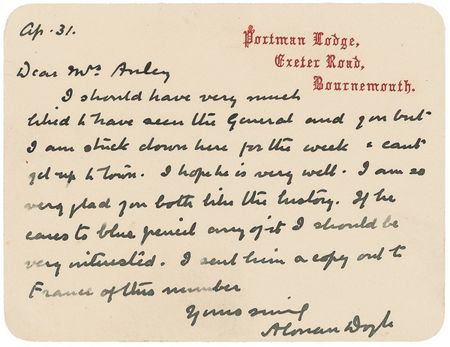 Ap. 31.
Portman Lodge,
Exeter Road,
Bournemouth.
Dear Mrs Anley
I should have very much
liked to have seen the General and you but
I am stuck down here for the week & cant
get up to town. I hope he is very well. I am so
very glad you both like the history. If he
cares to blue pencil any of it I should be
very interested. I sent him a copy out to
France of this number
Yours sincly
A Conan Doyle